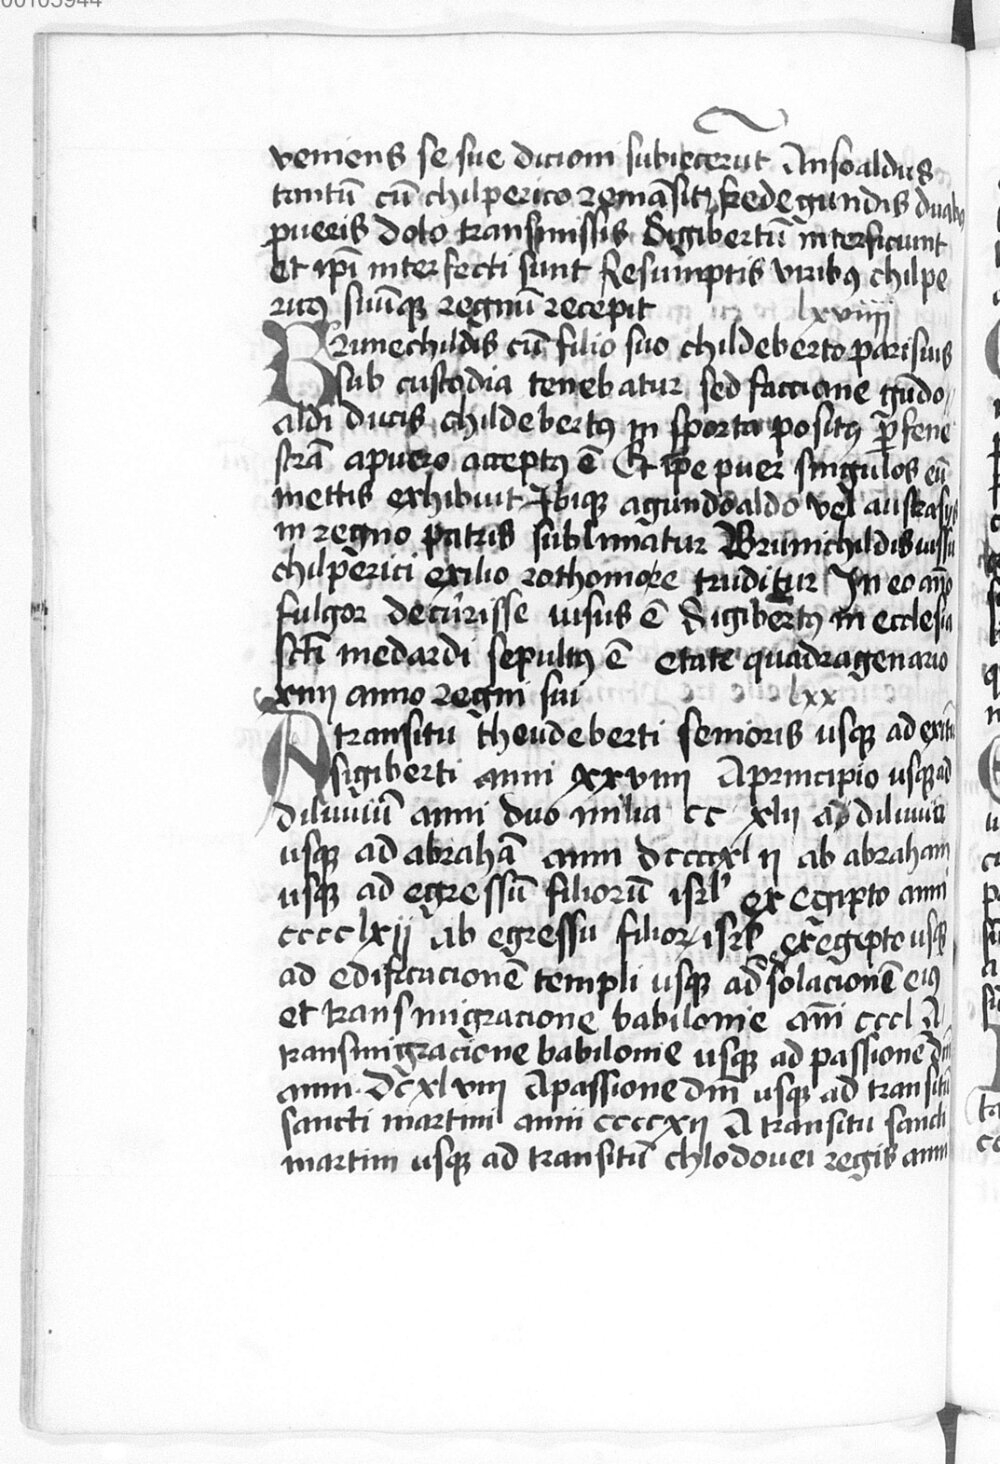 00105944
veniens se sue dicioni subiecerūt Ansoaldus
tantū cū chilperico remāsit fredegundis duabꝰ
pueris dolo transmissis Sigibertū interficiunt
Et ip̄i interfecti sunt Resumptis viribꝰ chilpe
ricꝰ suūqꝫ regnū recepit lxviiij
Brunechildis cū filio suo childeberto parisius
sub custodia tenebatur sed faccione gūdo
aldi ducis childebertꝰ in sporta positꝰ ꝑ fene
strā a puero acceptꝰ ē Et ip̄e puer singulos eū
mettis exhibuit Ibiqꝫ a gundoaldo vel austrasijs
in regno patris sublimatur Brunichildis iussu
chilperici exilio rothomore truditur In eo an̄o
fulgor decūrisse visus ē Sigibertꝰ in ecclesia
sc̄ti medardi sepultꝰ ē etate quadragenario
xiiij anno regni sui lxx
A transitu theudeberti senioris usqꝫ ad exitū
sigiberti anni xxviiij A principio usqꝫ ad
diluuiū anni duo milia cc xlij a diluuio
usqꝫ ad abrahā anni dccccxlij ab abraham
usqꝫ ad egressū filiorū isrl̄ ex egipto anni
cccclxij ab egressu filioꝝ isrl̄ ex egipto usqꝫ
ad edificacionē templi usqꝫ ad desolacionē eiꝰ
et transmigracione babilonie an̄i cccl A
transmigracione babilonie usqꝫ ad passionē dn̄i
anni dcxlviiij A passione dn̄i usqꝫ ad transitū
sancti martini anni ccccxij A transitu sancti
martini usqꝫ ad transitū chlodouei regis anni